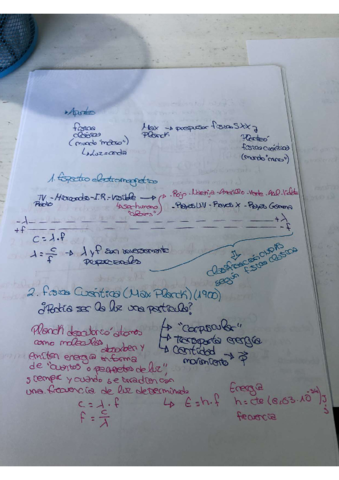 • Apuntes
física clásica (mundo "macro") ↳ Luz = onda
Max Planck → propulsor física S.XX y
"Planteó" física cuántica (mundo "micro")
1. Espectro electromagnético
TV - Microondas - I.R - Visible → Rojo - Naranja - Amarillo - Verde - Azul - Violeta
Radio
- Rayos UV - Rayos X - Rayos Gamma
+λ
-λ
-f
+f
c = λ · f
λ = c/f → λ y f son inversamente proporcionales
según física clásica
2. Física Cuántica (Max Planck) (1900)
¿Podría ser la luz una partícula?
Planck descubrió átomos
como moléculas
absorben y
emiten energía en forma
de "cuantos" o paquetes de luz",
siempre y cuando se irradien con
una frecuencia de luz determinada
→ "Corpuscular"
→ Transporta energía
→ Cantidad movimiento → ?
c = λ · f
f = c/λ
↳ E = h · f
Energía
h = cte (6,63 · 10⁻³⁴) J·s
frecuencia